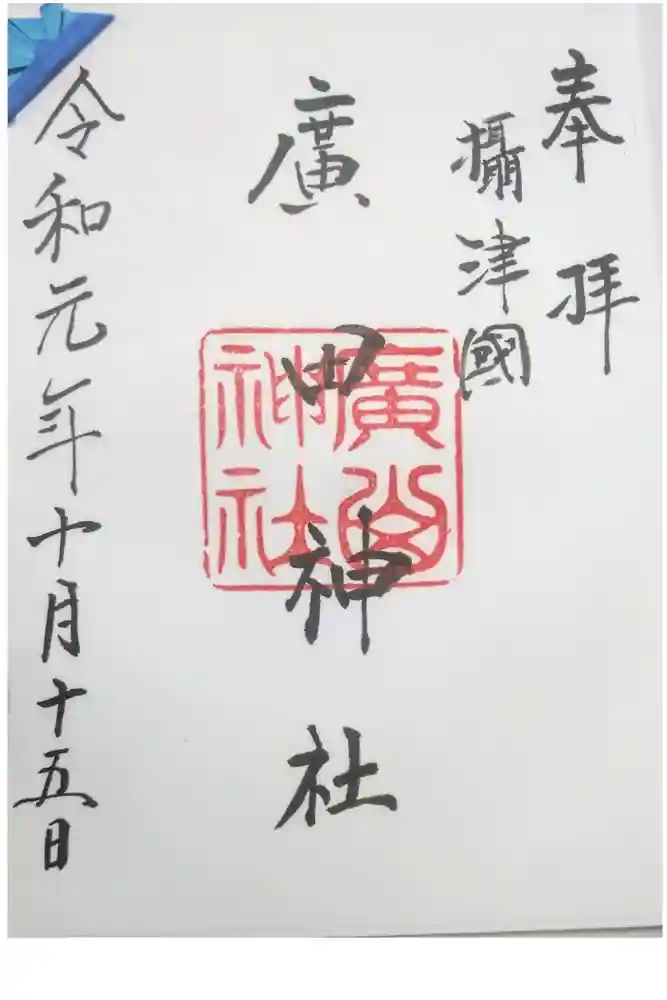 奉拜
攝津國
廣田神社
廣田神社
令和元年十月十五日